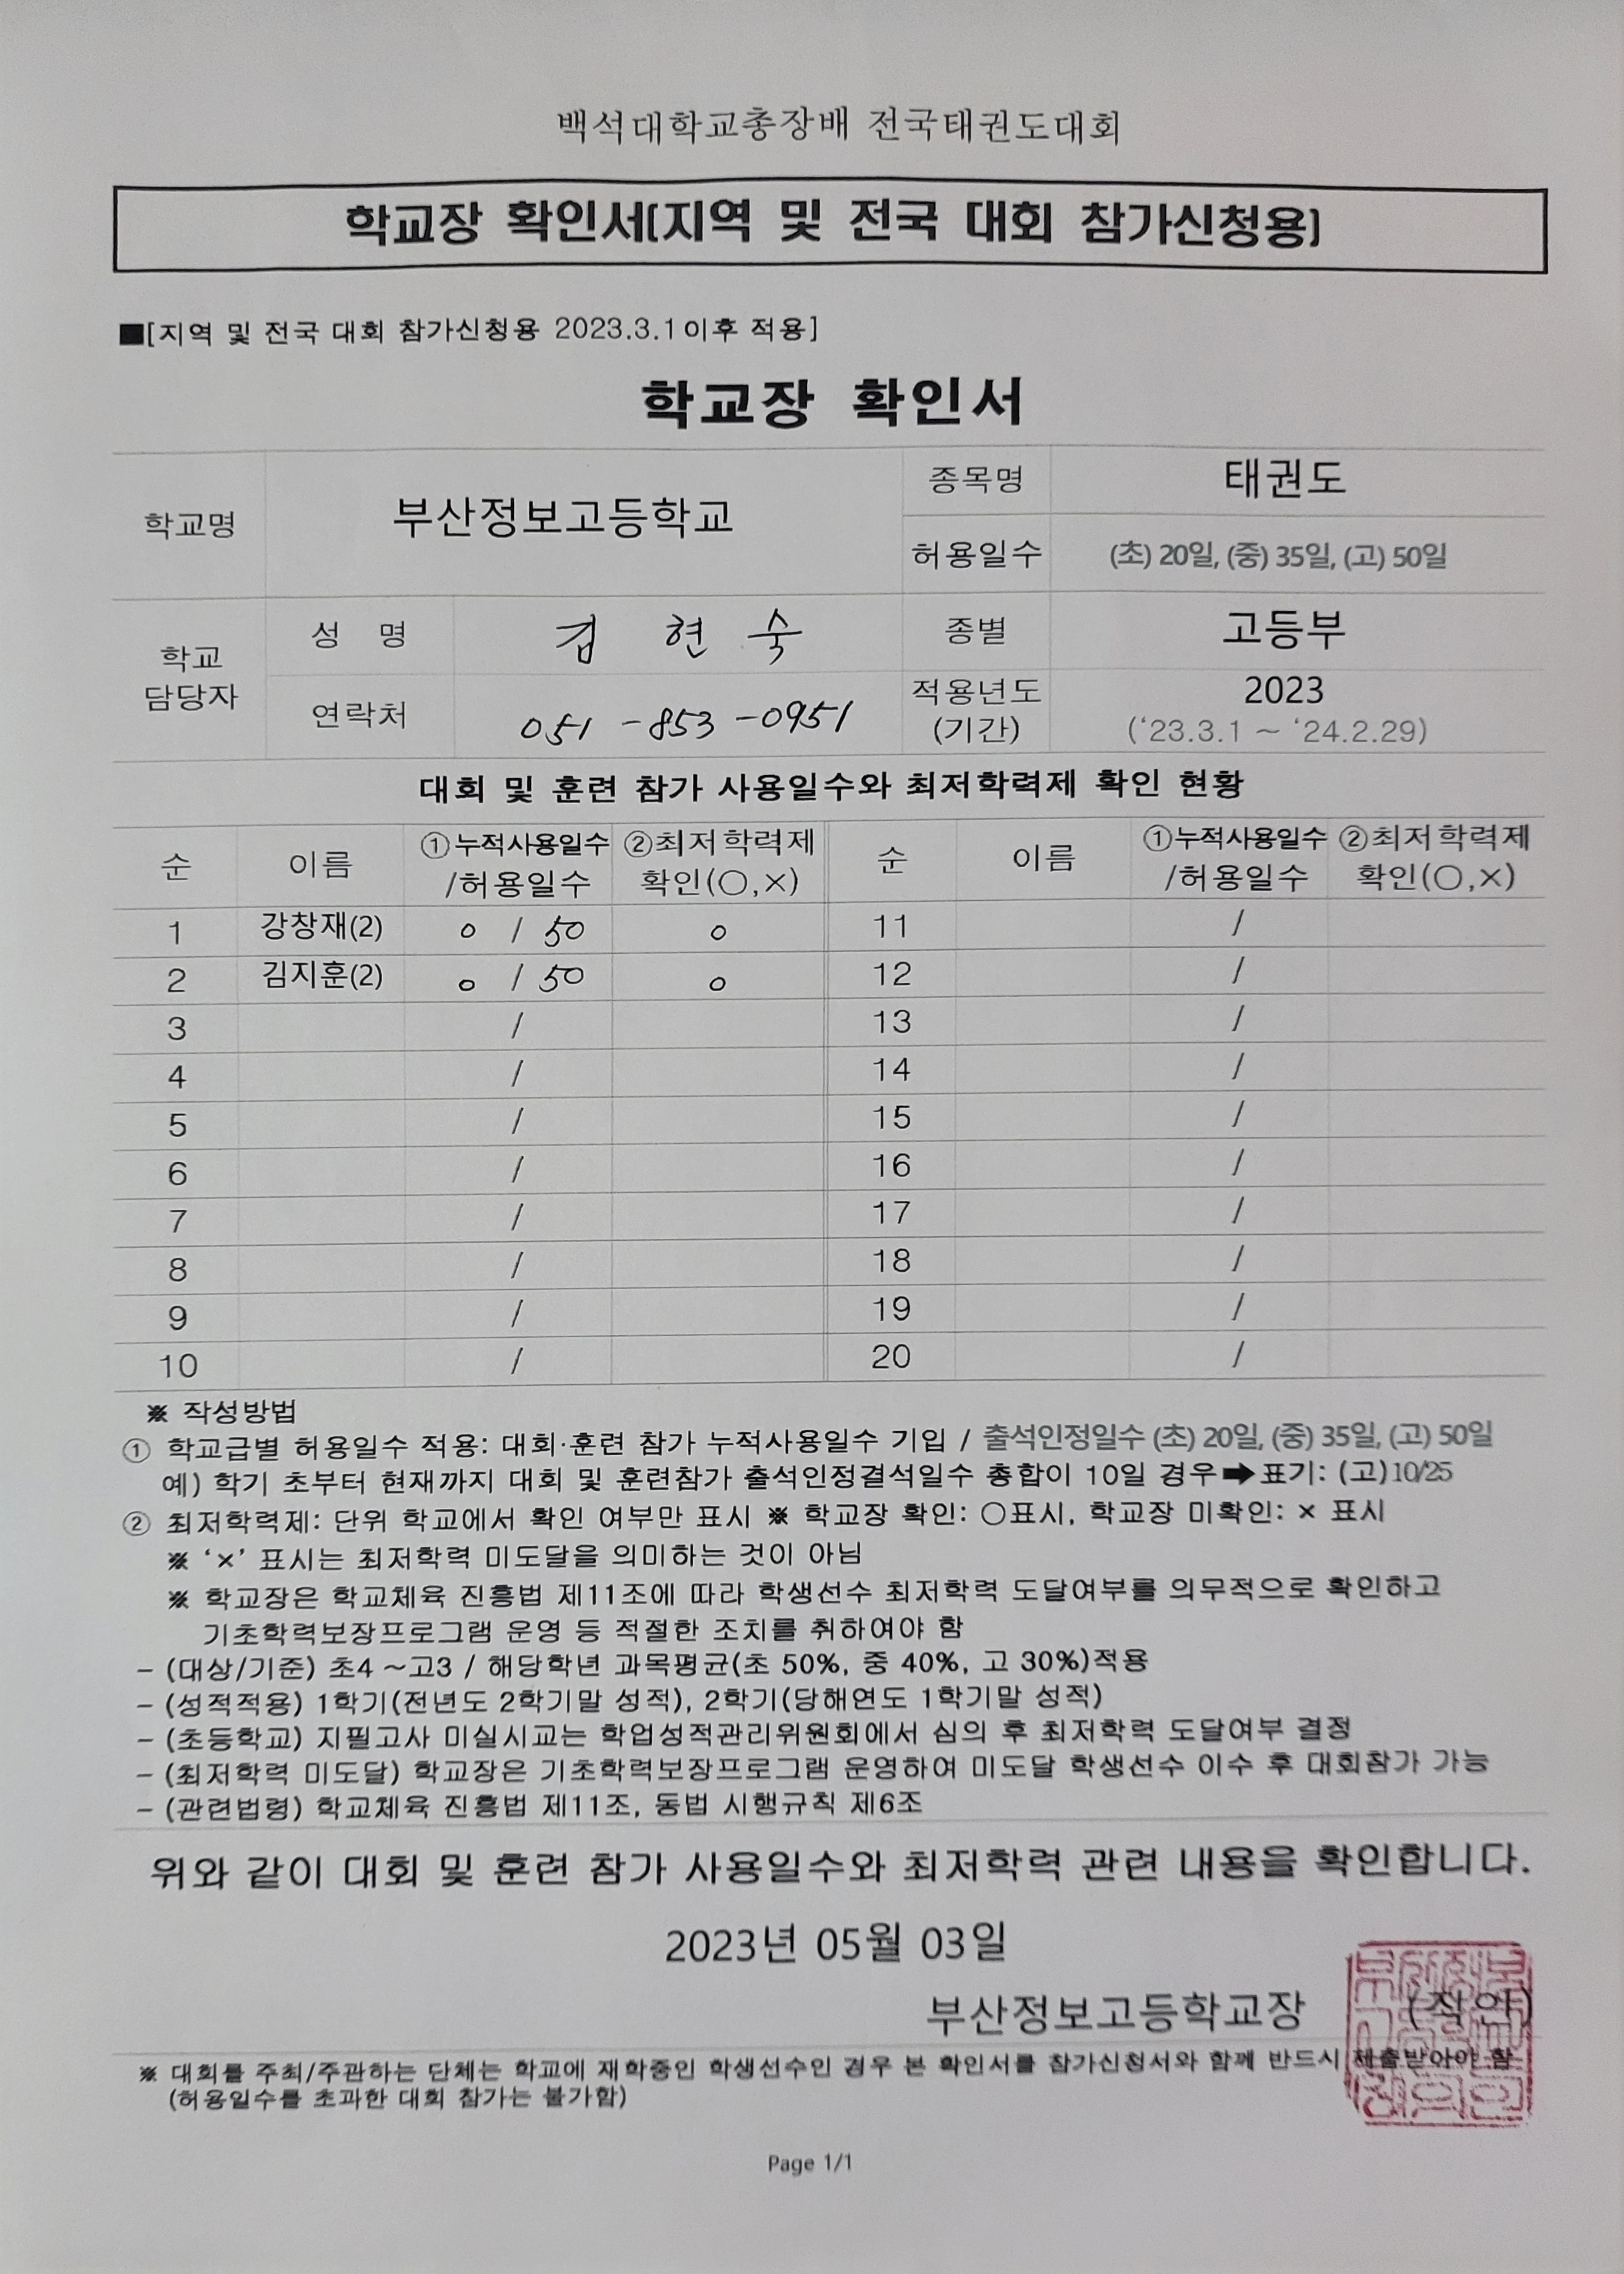 백석대학교총장배 전국태권도대회
학교장 확인서(지역 및 전국 대회 참가신청용)
■[지역 및 전국 대회 참가신청용 2023.3.1이후 적용]
학교장 확인서
학교명 부산정보고등학교 종목명 태권도
허용일수 (초) 20일, (중) 35일, (고) 50일
학교 담당자 성 명 김 현 숙 종별 고등부
연락처 051-853-0951 적용년도 (기간) 2023 (‘23.3.1 ~ ‘24.2.29)
대회 및 훈련 참가 사용일수와 최저학력제 확인 현황
순 이름 ①누적사용일수 /허용일수 ②최저학력제 확인(○,×) 순 이름 ①누적사용일수 /허용일수 ②최저학력제 확인(○,×)
1 강창재(2) 0 / 50 ○ 11 /
2 김지훈(2) 0 / 50 ○ 12 /
3 / 13 /
4 / 14 /
5 / 15 /
6 / 16 /
7 / 17 /
8 / 18 /
9 / 19 /
10 / 20 /
※ 작성방법
① 학교급별 허용일수 적용: 대회·훈련 참가 누적사용일수 기입 / 출석인정일수 (초) 20일, (중) 35일, (고) 50일
예) 학기 초부터 현재까지 대회 및 훈련참가 출석인정결석일수 총합이 10일 경우➡표기: (고)10/25
② 최저학력제: 단위 학교에서 확인 여부만 표시 ※ 학교장 확인: ○표시, 학교장 미확인: × 표시
※ ‘×’ 표시는 최저학력 미도달을 의미하는 것이 아님
※ 학교장은 학교체육 진흥법 제11조에 따라 학생선수 최저학력 도달여부를 의무적으로 확인하고
기초학력보장프로그램 운영 등 적절한 조치를 취하여야 함
– (대상/기준) 초4 ~고3 / 해당학년 과목평균(초 50%, 중 40%, 고 30%)적용
– (성적적용) 1학기(전년도 2학기말 성적), 2학기(당해연도 1학기말 성적)
– (초등학교) 지필고사 미실시교는 학업성적관리위원회에서 심의 후 최저학력 도달여부 결정
– (최저학력 미도달) 학교장은 기초학력보장프로그램 운영하여 미도달 학생선수 이수 후 대회참가 가능
– (관련법령) 학교체육 진흥법 제11조, 동법 시행규칙 제6조
위와 같이 대회 및 훈련 참가 사용일수와 최저학력 관련 내용을 확인합니다.
2023년 05월 03일
부산정보고등학교장 (직인)
※ 대회를 주최/주관하는 단체는 학교에 재학중인 학생선수인 경우 본 확인서를 참가신청서와 함께 반드시 제출받아야 함
(허용일수를 초과한 대회 참가는 불가함)
Page 1/1